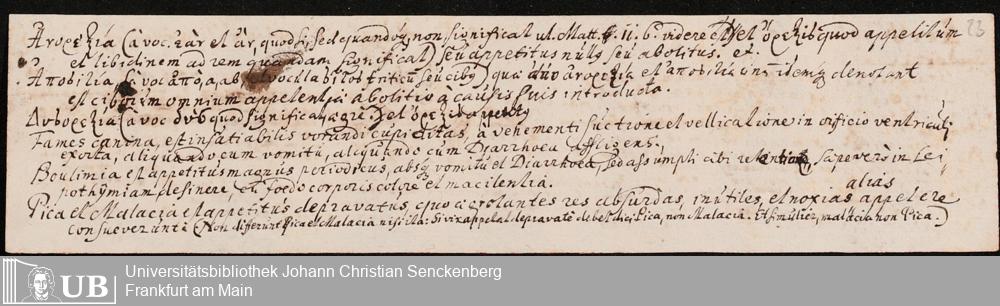 23
Anorexia (à voc. et quod sed quandoq, non significat ut Matt. 11. 6. videre est) et ὄρεξις quod appetitum
et libidinem ad rem quandam significat) seu appetitus nullus seu abolitus. et.
Anobilia qua duo anorexia et anobilia idemq denotant
est ciborum omnium appetentia abolitio à causis suis introducta.
Dusorexia (à voc quod significat, aegre et
Fames canina, est insatiabilis vorandi cupiditas, à vehementi suctione et vellicatione in orificio ventriculi
exorta, aliquando cum vomitu, alcquando cum Djarrhoea affligens.
Boulimia est appetitus magnus periodicus, absq vomitu et Diarrhoea, sed assumpti cibi retentione, saepe verò in Lei
pothymiam desinere, et foedo corporis colore et macilentia.
alias
Pica et Malacia est appetitus depravatus, quo aegrotantes res absurdas, inutiles, et noxias appetere
consueverunt (Non differunt Pica et Malacia nisi ita: Si vir appetat depravatè debet dici Pica, non Malacia. Et si mulier, malacia non Pica.)
UB
Universitätsbibliothek Johann Christian Senckenberg
Frankfurt am Main